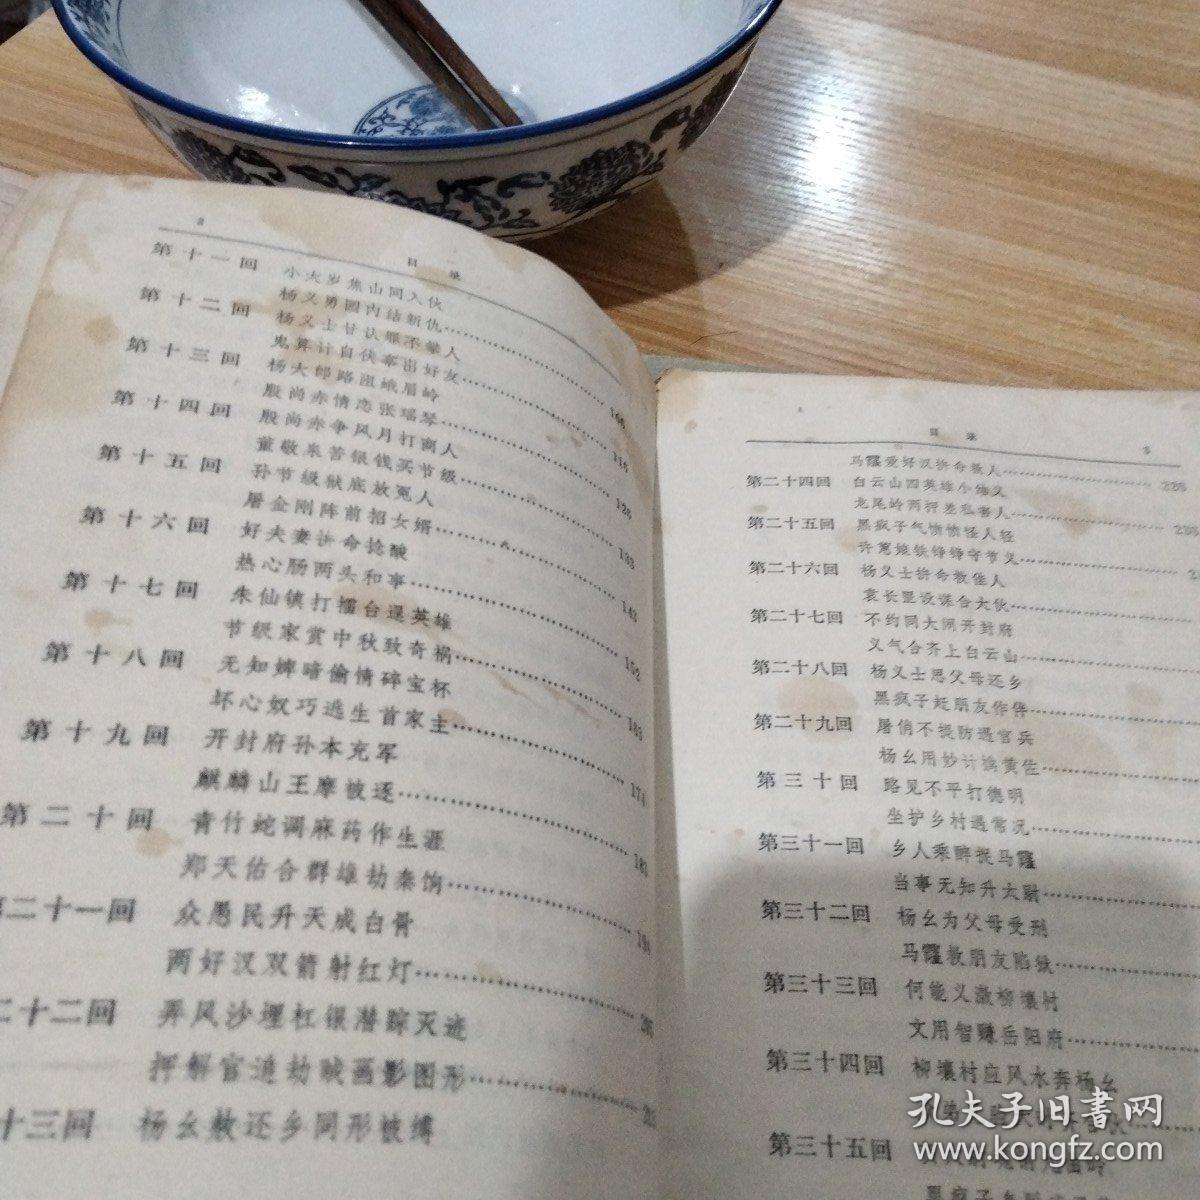 2
目 录
第十一回 小太岁焦山同入伙
杨义勇园内结新仇
第十二回 杨义士甘认罪不攀人
鬼算计自伏辜出好友 106
第十三回 杨大郎路沮峨眉岭
殷尚赤情恋张瑶琴 115
第十四回 殷尚赤争风月打商人
董敬泉苦银钱买节级 126
第十五回 孙节级狱底放冤人
屠金刚阵前招女婿 133
第十六回 好夫妻拚命捻酸
热心肠两头和事 143
第十七回 朱仙镇打擂台逞英雄
节级家赏中秋致奇祸 152
第十八回 无知婢暗偷情碎宝杯
坏心奴巧逃生首家主 163
第十九回 开封府孙本充军
麒麟山王摩被逐 174
第二十回 青竹蛇调麻药作生涯
郑天佑合群雄劫秦饷 183
第二十一回 众愚民升天成白骨
两好汉双箭射红灯 194
二十二回 弄风沙埋杠银潜踪灭迹
押解官追劫贼画影图形
十三回 杨幺赦还乡同形被缚
目 录
3
马霳爱好汉拚命救人
第二十四回 白云山四英雄小结义
龙尾岭两押差私害人
第二十五回 黑疯子气愤愤怪人轻
许蕙娘铁铮铮守节义
第二十六回 杨义士拚命救佳人
袁长罡设谋合大伙
第二十七回 不约同大闹开封府
义气合齐上白云山
第二十八回 杨义士思父母还乡
黑疯子赶朋友作伴
第二十九回 屠俏不提防遇官兵
杨幺用妙计擒黄佐
第三十回 路见不平打德明
坐护乡村遇常况
第三十一回 乡人乘醉捉马霳
当事无知升太尉
第三十二回 杨幺为父母受刑
马霳救朋友陷狱
第三十三回 何能义激柳壤村
文用智赚岳阳府
第三十四回 柳壤村应风水奔杨幺
第三十五回
黑疯子
孔夫子旧书网
www.kongfz.com